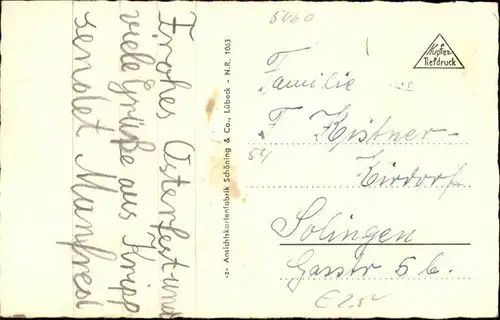 Frohes Osterfest und
viele Grüße aus Knipp
sendet Manfred
-z- Ansichtskartenfabrik Schöning & Co., Lübeck - N.R. 1063
5460
Kupfer-
Tiefdruck
Familie
F. Kistner-
54
Kirdorf
Solingen
Gasstr 5 b.